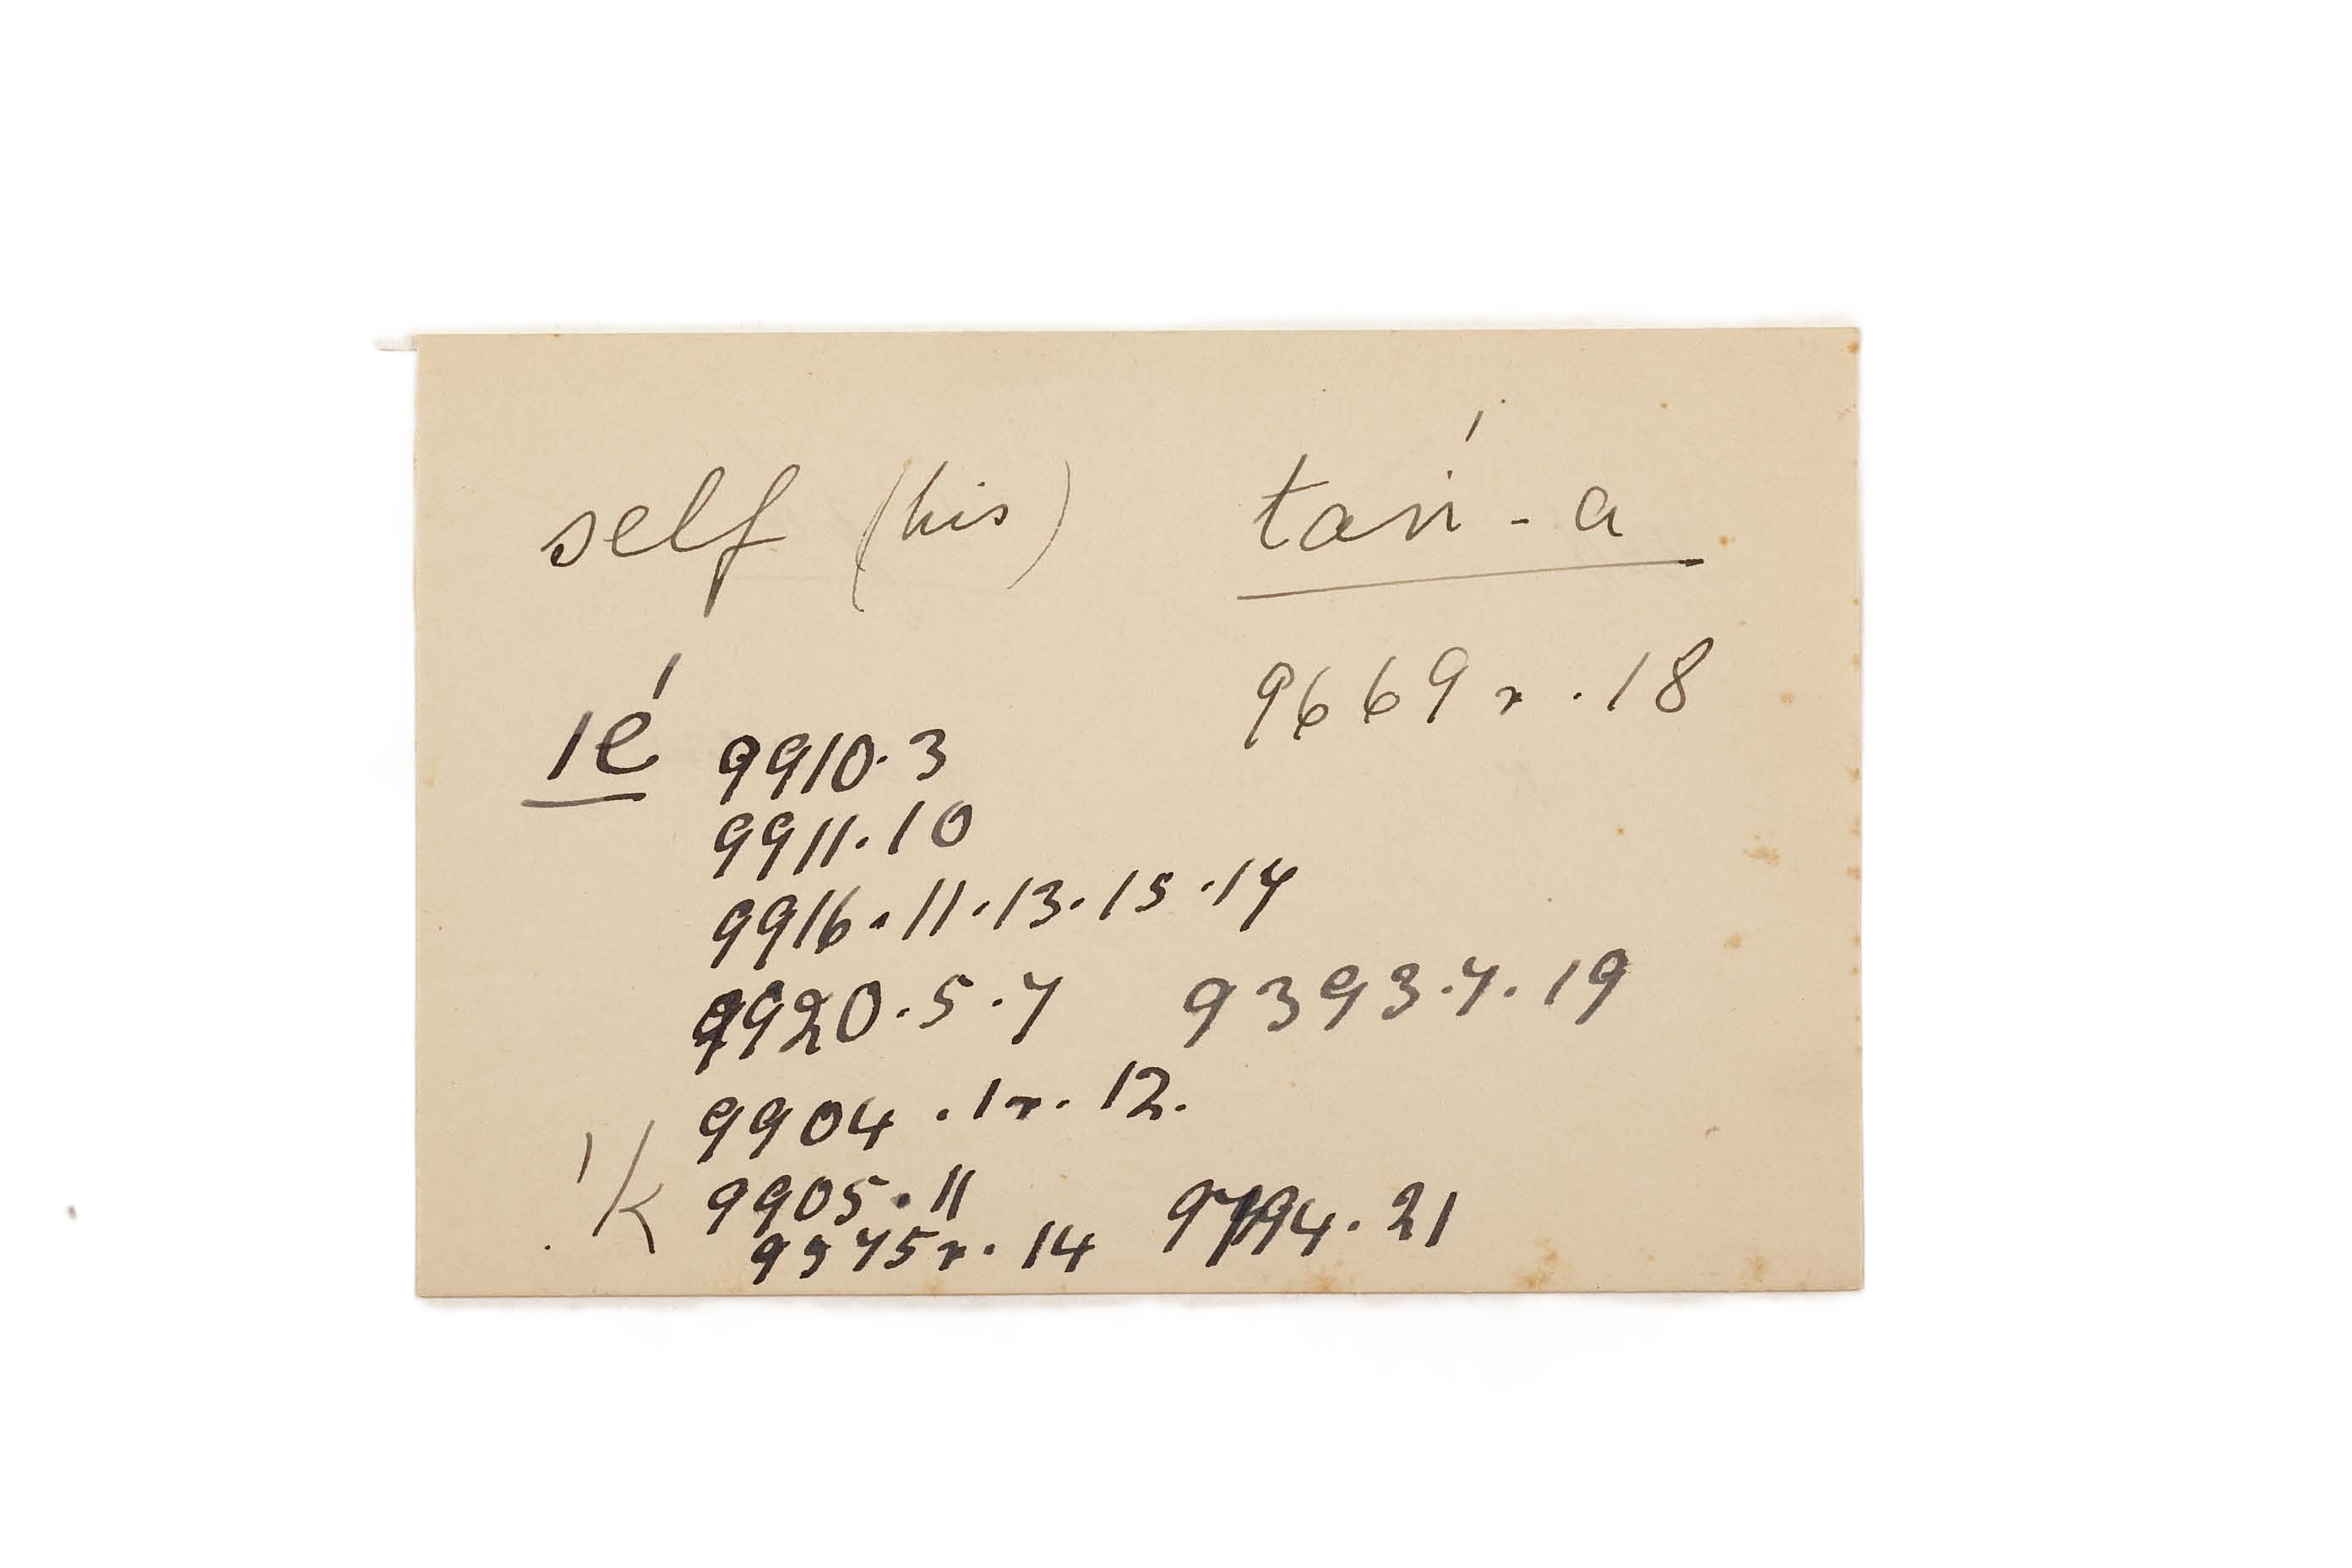 self (his) tań-a
9669r.18
ıé 9910.3
9911.10
9916.11.13.15.17
9920.5.7 9393.7.19
9904.1r.12.
k 9905.11 9794.21
9975r.14